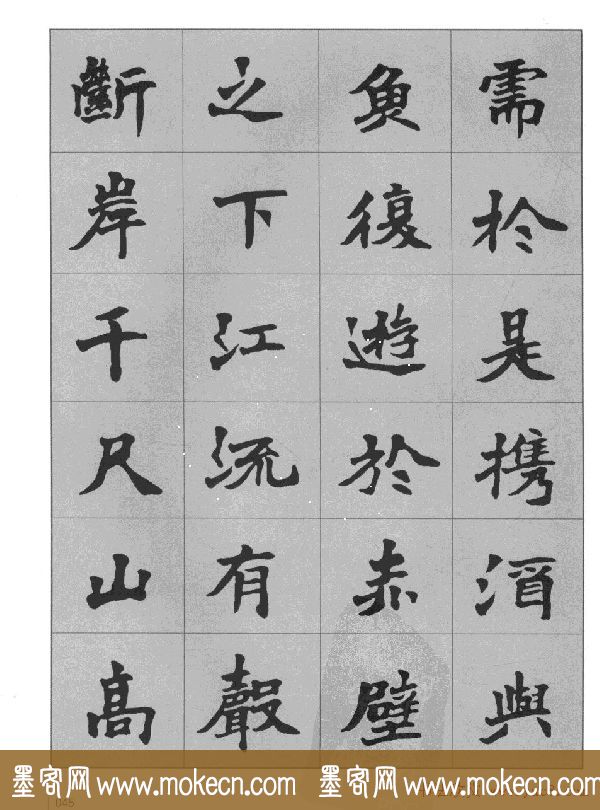 需於是携酒與
魚復遊於赤壁
之下江流有聲
斷岸千尺山高
墨客网 www.mokecn.com 墨客网 www.mokecn.com
045